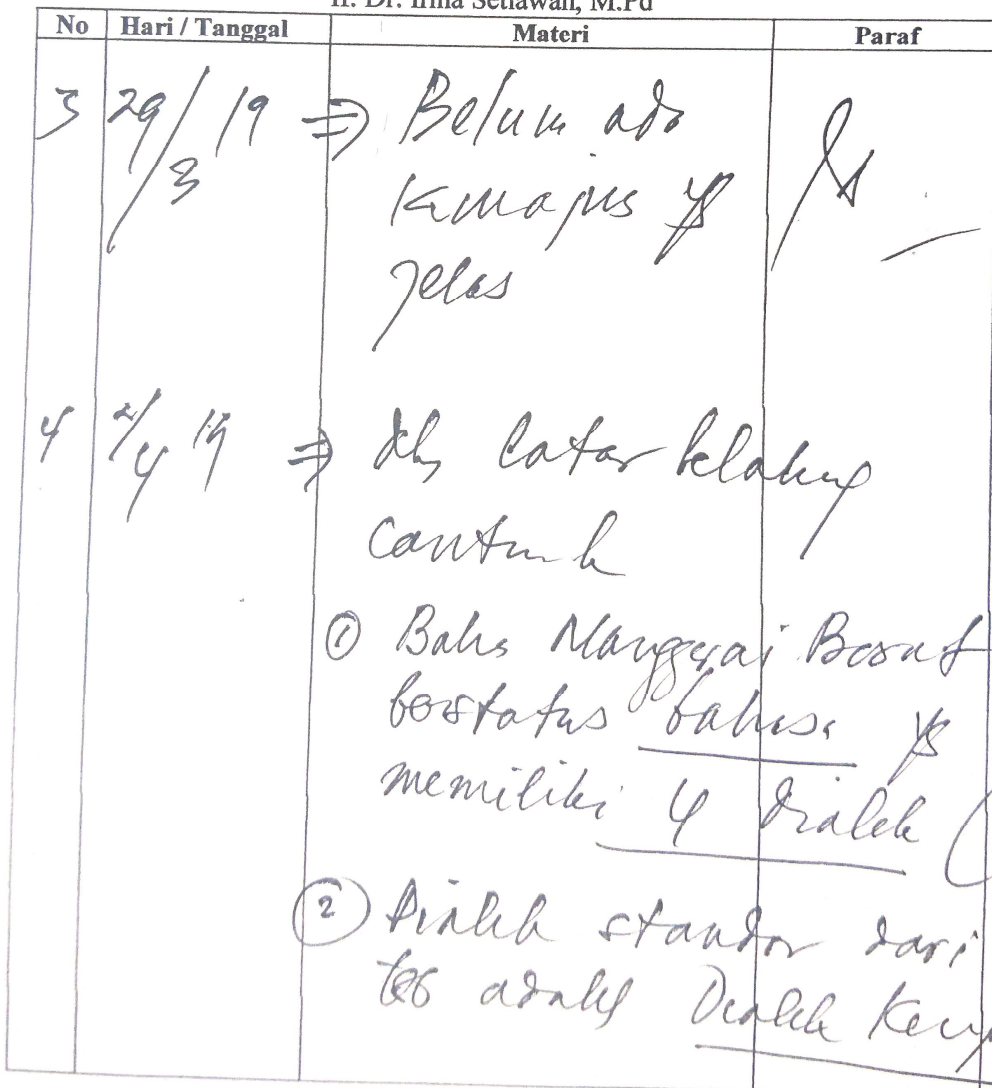 II. Dr. Irma Setiawan, M.Pd
No Hari / Tanggal Materi Paraf
3 29/3 19 ⇒ Belum ada
yg
jelas
4 2/4 19 ⇒ latar belakang
① Bahs Manggarai Barat
berstatus bahasa yg
memiliki 4 dialek (
② Dialek standar dari
adalah Dialek